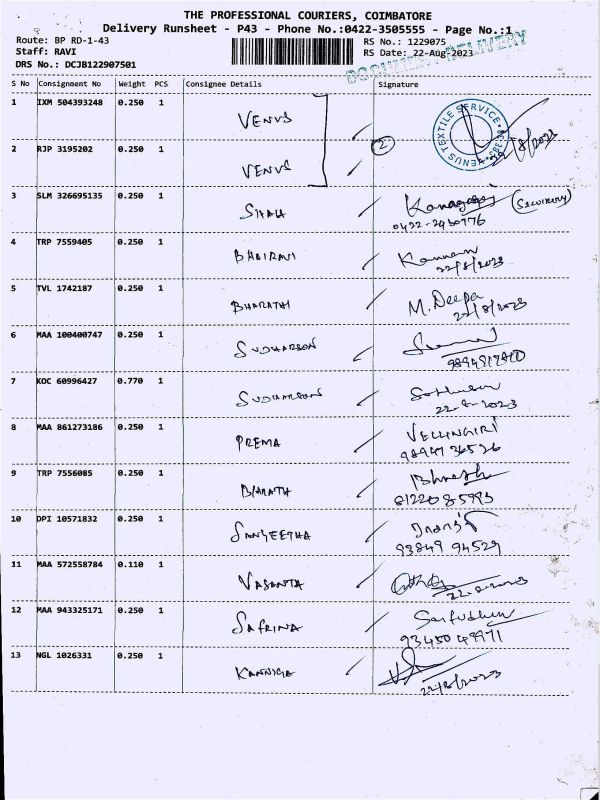 THE PROFESSIONAL COURIERS, COIMBATORE
Delivery Runsheet - P43 - Phone No.:0422-3505555 - Page No.:1
Route: BP RD-1-43
RS No.: 1229075
Staff: RAVI
RS Date: 22-Aug-2023
DRS No.: DCJB122907501
DOCUMENT DELIVERY
S No Consignment No Weight PCS Consignee Details Signature
1 IXM 504393248 0.250 1 VENUS
VENUS TEXTILE SERVICE
2 RJP 3195202 0.250 1 VENUS 2
22/8/2023
3 SLM 326695135 0.250 1 SHAH Kanagaraj (SECURITY)
0422-2430776
4 TRP 7559405 0.250 1 BHAIRAVI Kannan
22/8/2023
5 TVL 1742187 0.250 1 BHARATHI M. Deepa
22/8/2023
6 MAA 100400747 0.250 1 SUDHARSON
7 KOC 60996427 0.770 1 SUDHARSON
22-8-2023
8 MAA 861273186 0.250 1 PREMA VELLINGIRI
98947 36526
9 TRP 7556085 0.250 1 BHARATH
81220 85993
10 DPI 10571832 0.250 1 SANGEETHA
93849 94529
11 MAA 572558784 0.110 1 VASANTA
22-8-2023
12 MAA 943325171 0.250 1 SAFRINA Saifudhin
93450 49971
13 NGL 1026331 0.250 1 KANNIGA
22/8/2023